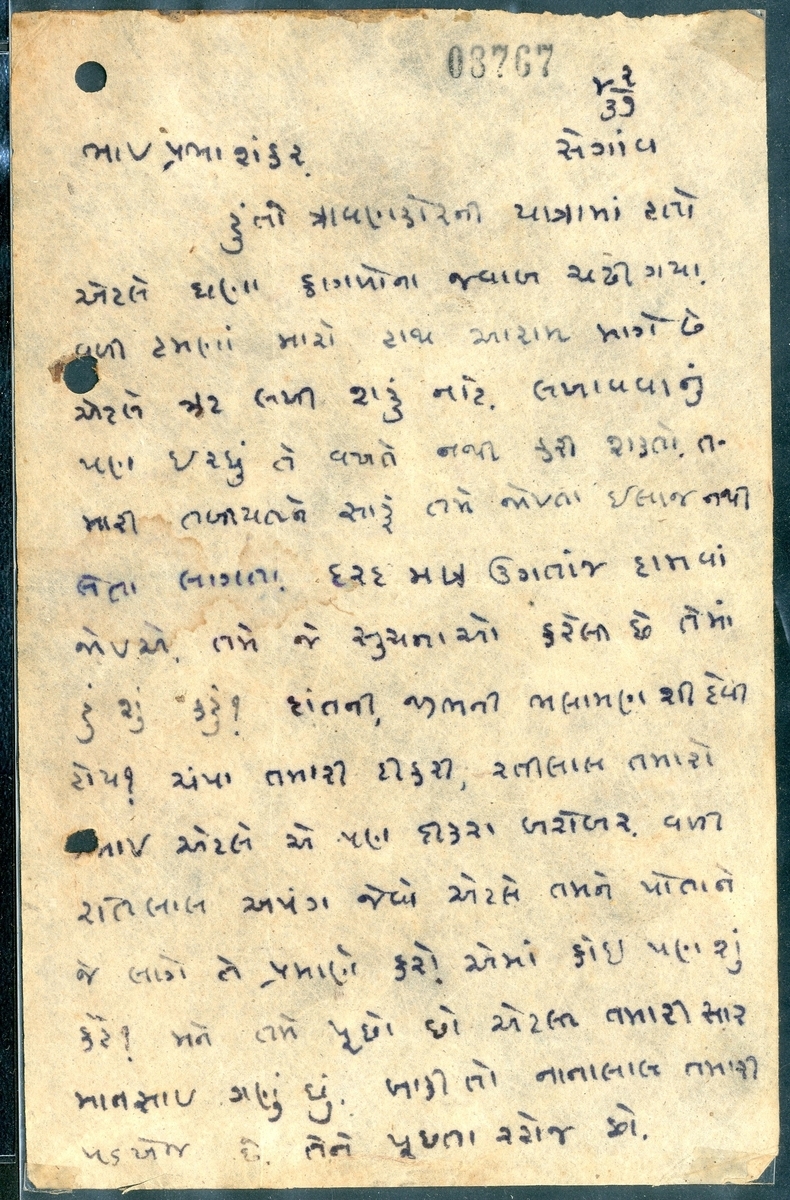 03767
૪ ૨
૩૭
ભાઇ પ્રભાશંકર,
સેગાંવ
હું તો ત્રાવણકોરની યાત્રામાં હતો
એટલે ઘણા કાગળોના જવાબ ચઢી ગયા.
વળી હમણાં મારો હાથ આરામ માગે છે
એટલે ઝટ લખી શકું નહિ. લખાવવાનું
પણ ઇચ્છું તે વખતે નથી કરી શકતો. ત-
મારી તબીયતને સારું તમે જોઇતા ઈલાજ નથી
લેતા લાગતા. દરદ માત્ર ઉગતાંજ દામવાં
જોઇએ. તમે જે સુચનાઓ કરેલી છે તેમાં
હું શું કહું? દાંતની, જીભની ભલામણ શી દેવી
હોય? ચંપા તમારી દીકરી, રતીલાલ તમારો
જમાઇ એટલે એ પણ દીકરા બરોબર. વળી
રતિલાલ અપંગ જેવો એટલે તમને પોતાને
જે લાગે તે પ્રમાણે કરો. એમાં કોઇ પણ શું
કહે? મને તમે પૂછો છો એટલા તમારી સાર
માનસાઇ ગણું છું. બાકી તો નાનાલાલ તમારી
પડખેજ છે. તેને પૂછતા રહોજ છો.